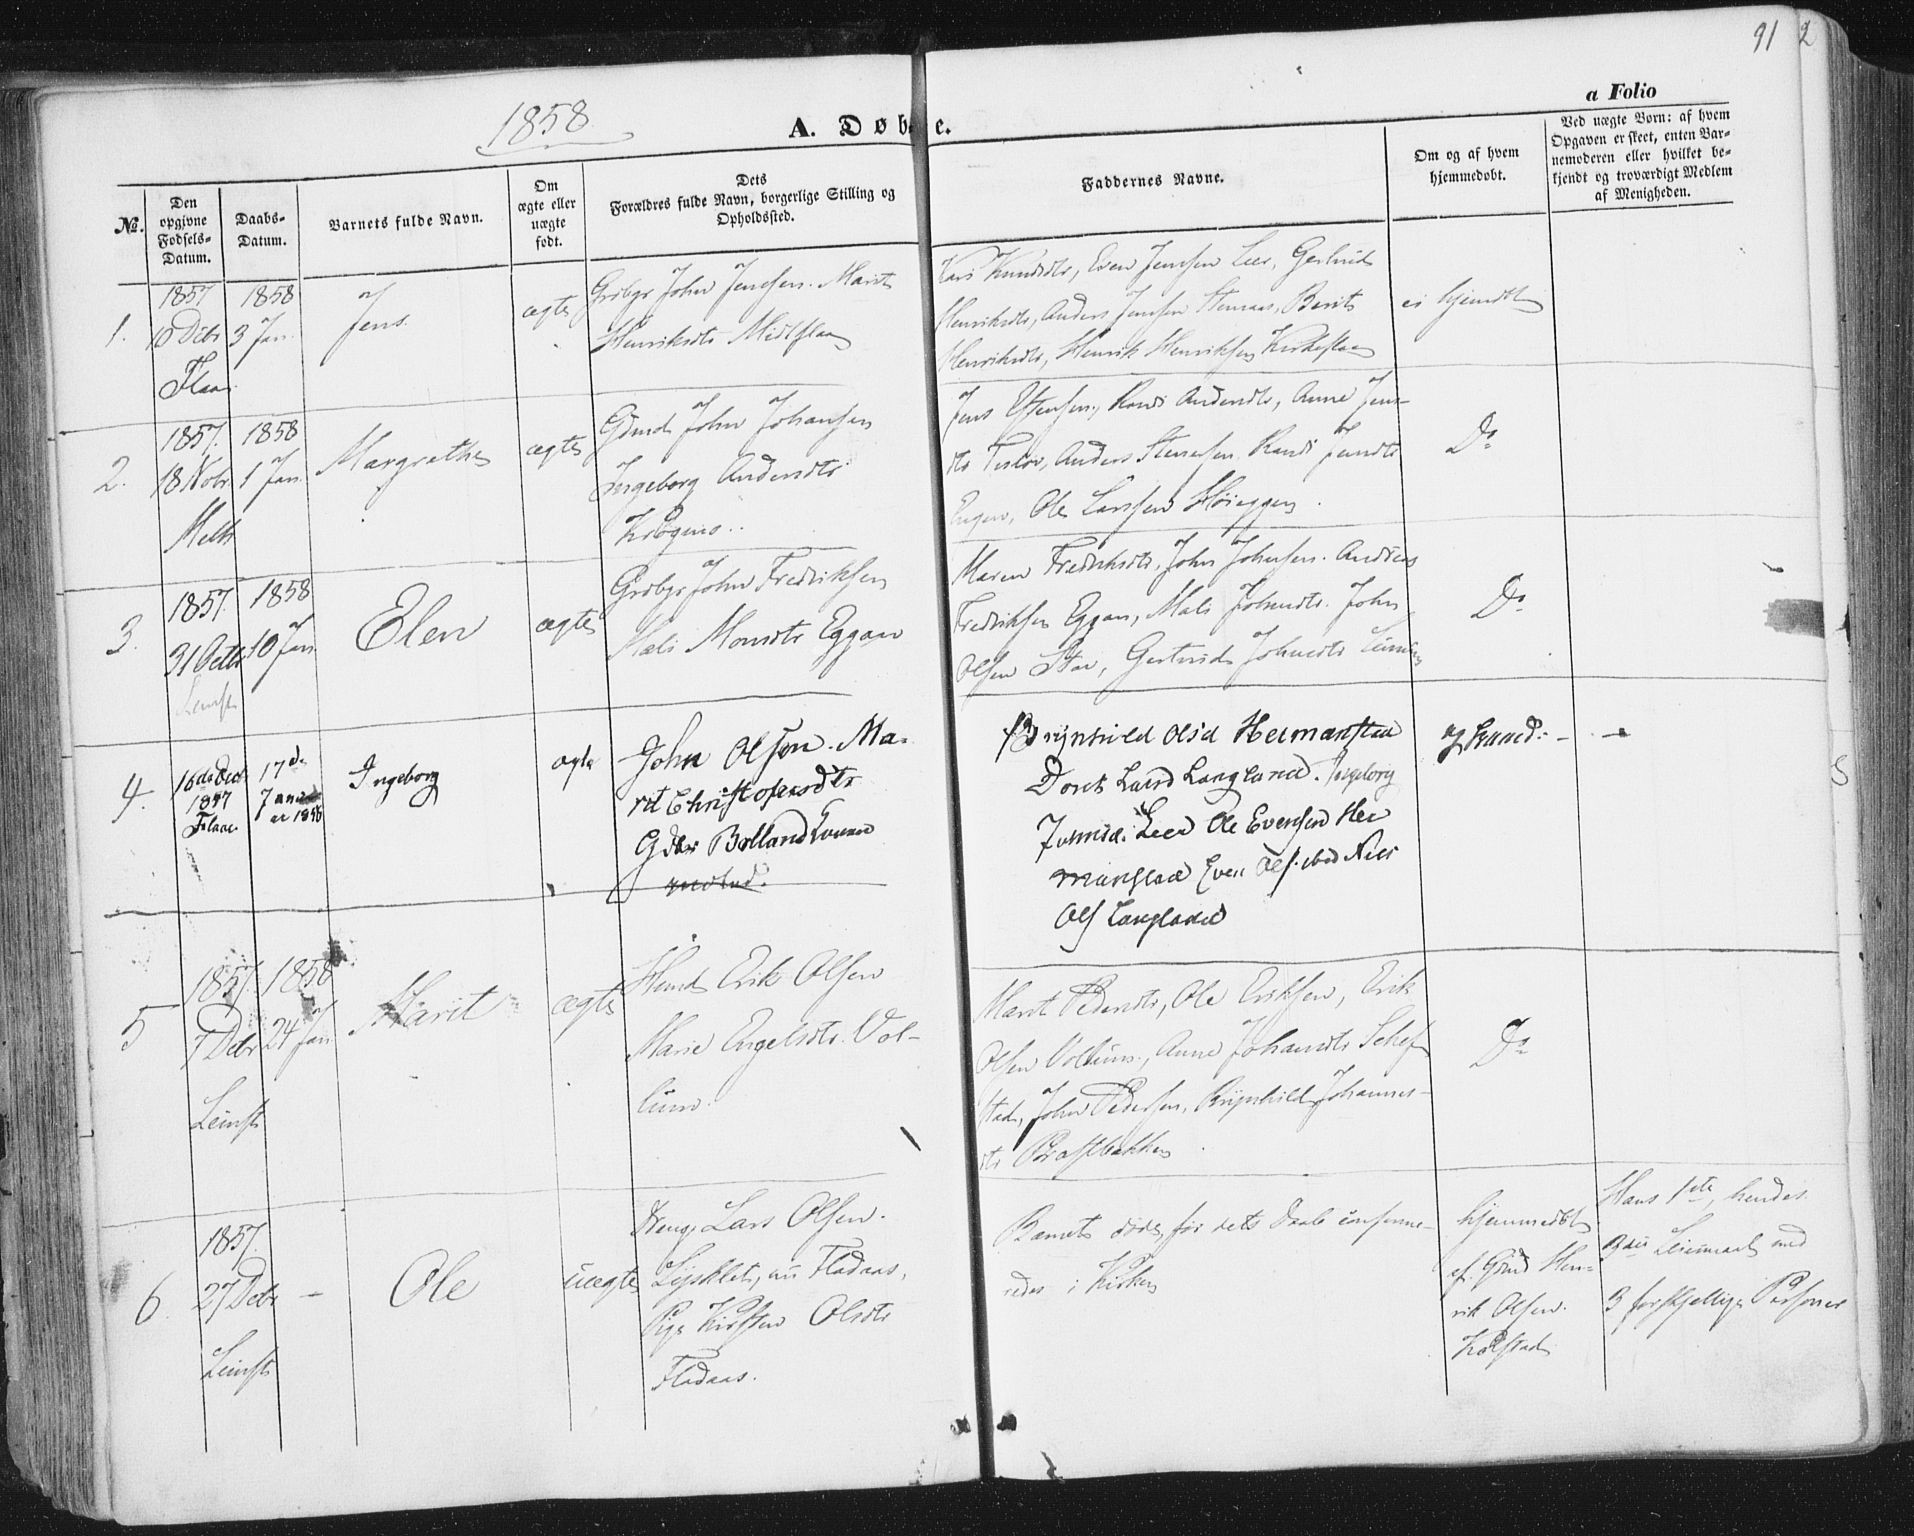 91 2
1858
A. Døbte.
a Folio
No.
Den opgivne Fødsels-Datum.
Daabs-Datum.
Barnets fulde Navn.
Om ægte eller uægte født.
Dets Forældres fulde Navn, borgerlige Stilling og Opholdssted.
Faddernes Navne.
Om og af hvem hjemmedøbt.
Ved uægte Børn: af hvem Opgaven er skeet, enten Barnemoderen eller hvilket bekjendt og troværdigt Medlem af Menigheden.
1.
1857
10 Debr
Flaa
1858
3 Jan.
Jens
ægte
Grdbgr John Jensen. Marit
Henriksdtr Midtflaa
Kari Knudsdtr, Even Jensen Leer, Gertrud
Henriksdtr, Anders Jensen Stenaas, Berit
Henriksdtr, Henrik Henriksen Kirkeflaa
ei hjemdbt
2.
1857.
18 Nobr
Melh
1858
1 Jan.
Margrethe
ægte
Gdmd John Johansen
Ingeborg Andersdtr
Jens Estensen, Randi Andersdtr, Anne Jens-
dtr Teslov, Anders Stenersen Randi Jensdtr
Engen, Ole Larssen Høieggen.
Do
3.
1857.
31 Octbr
Leinst
1858
10 Jan.
Elen
ægte
Grdbgr John Fredriksen
Mali Monsdtr Eggan
Maren Fredriksdtr, John Johnsen. Andreas
Fredriksen Eggan, Mali Johnsdtr. John
Olsen Stav, Gertrud Johnsdtr
Do
4.
16de Decb
1857
Flaae
17de
Janu
ar 1858
Ingeborg
ægte
John Olsen. Ma-
rit Christofersdtr
Brynhild Olsd Hermanstad
Doret Larsd Langland. Ingeborg
Leer Ole Evensen Her
manstad Even Ols. ibid Niels
Ols Langland
5
1857.
7 Debr
Leinst
1858
24 Jan
Marit
ægte
Hmd Erik Olsen
Marie Engelsdtr. Vol-
lum.
Marit Pedersdtr, Ole Eriksen, Erik
Olsen Vollum., Anne Johansdtr Schef
stad, John Pedersen, Brynhild Johannes-
dtr
Do
6.
1857.
27 Debr
Leinst
-
Ole
uægte
Dreng Lars Olsen.
Lysklet, nu Fladaas,
Pige Kirsten Olsdtr
Fladaas.
Barnet døde, før dets Daab confirme-
redes i Kirken
hjemmedøbt
af Gmd Hen-
rik Olsen.
Kolstad
Hans 1ste, hendes
3die Leiermaal med
3 forskjellige Personer